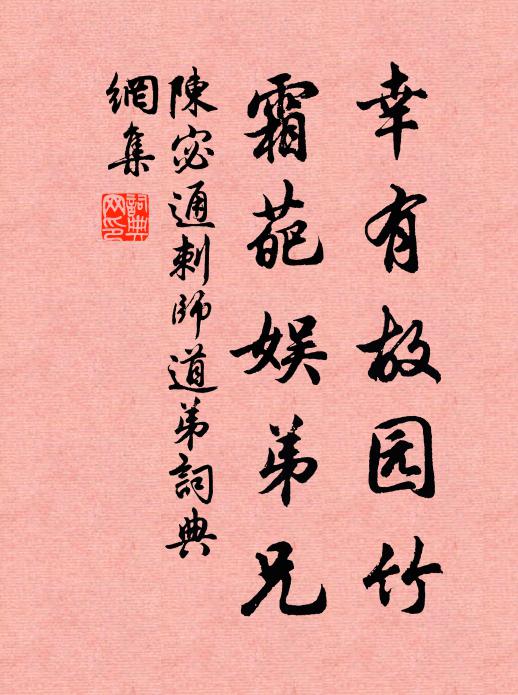 幸有故园竹
霜葩娱弟兄
陳宓通刺師道弟詞典
網集
詞典网印